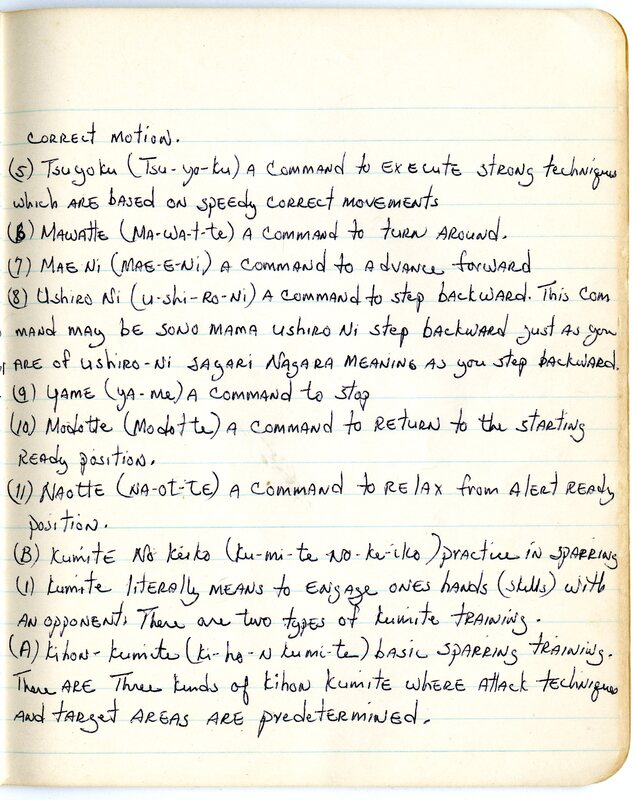 CORRECT MOTION.
(5) Tsuyoku (Tsu-yo-ku) A COMMAND to EXECUTE STRONG techniques
which ARE BASED ON SPEEDY CORRECT MOVEMENTS
(6) MAWATTE (MA-WA-t-te) A COMMAND to turn AROUND.
(7) MAE Ni (MAE-E-Ni) A COMMAND to ADVANCE forward
(8) Ushiro Ni (u-shi-Ro-Ni) A COMMAND to step BACKWARD. This COM
MAND MAY BE SONO MAMA Ushiro Ni step BACKWARD just AS you
ARE of Ushiro-Ni SAGARi NAGARA MEANING AS you step BACKWARD.
(9) YAME (YA-ME) A COMMAND to stop
(10) Modotte (Modotte) A COMMAND to RETURN to the STARTING
READY position.
(11) NAOTTE (NA-OT-TE) A COMMAND to RELAX from ALERT READY
position.
(B) KumiTE No Keiko (Ku-mi-te-NO-Ke-iko) practice in SPARRING
(1) Kumite literally MEANS to ENGAGE ONES hANDS (skills) with
AN OPPONENT. There are two types of Kumite TRAINING.
(A) Kihon-Kumite (Ki-ho-N Kumi-te) basic SPARRING TRAINING.
There ARE Three kinds of Kihon Kumite WHERE Attack techniques
AND TARGET AREAS ARE predetermined.